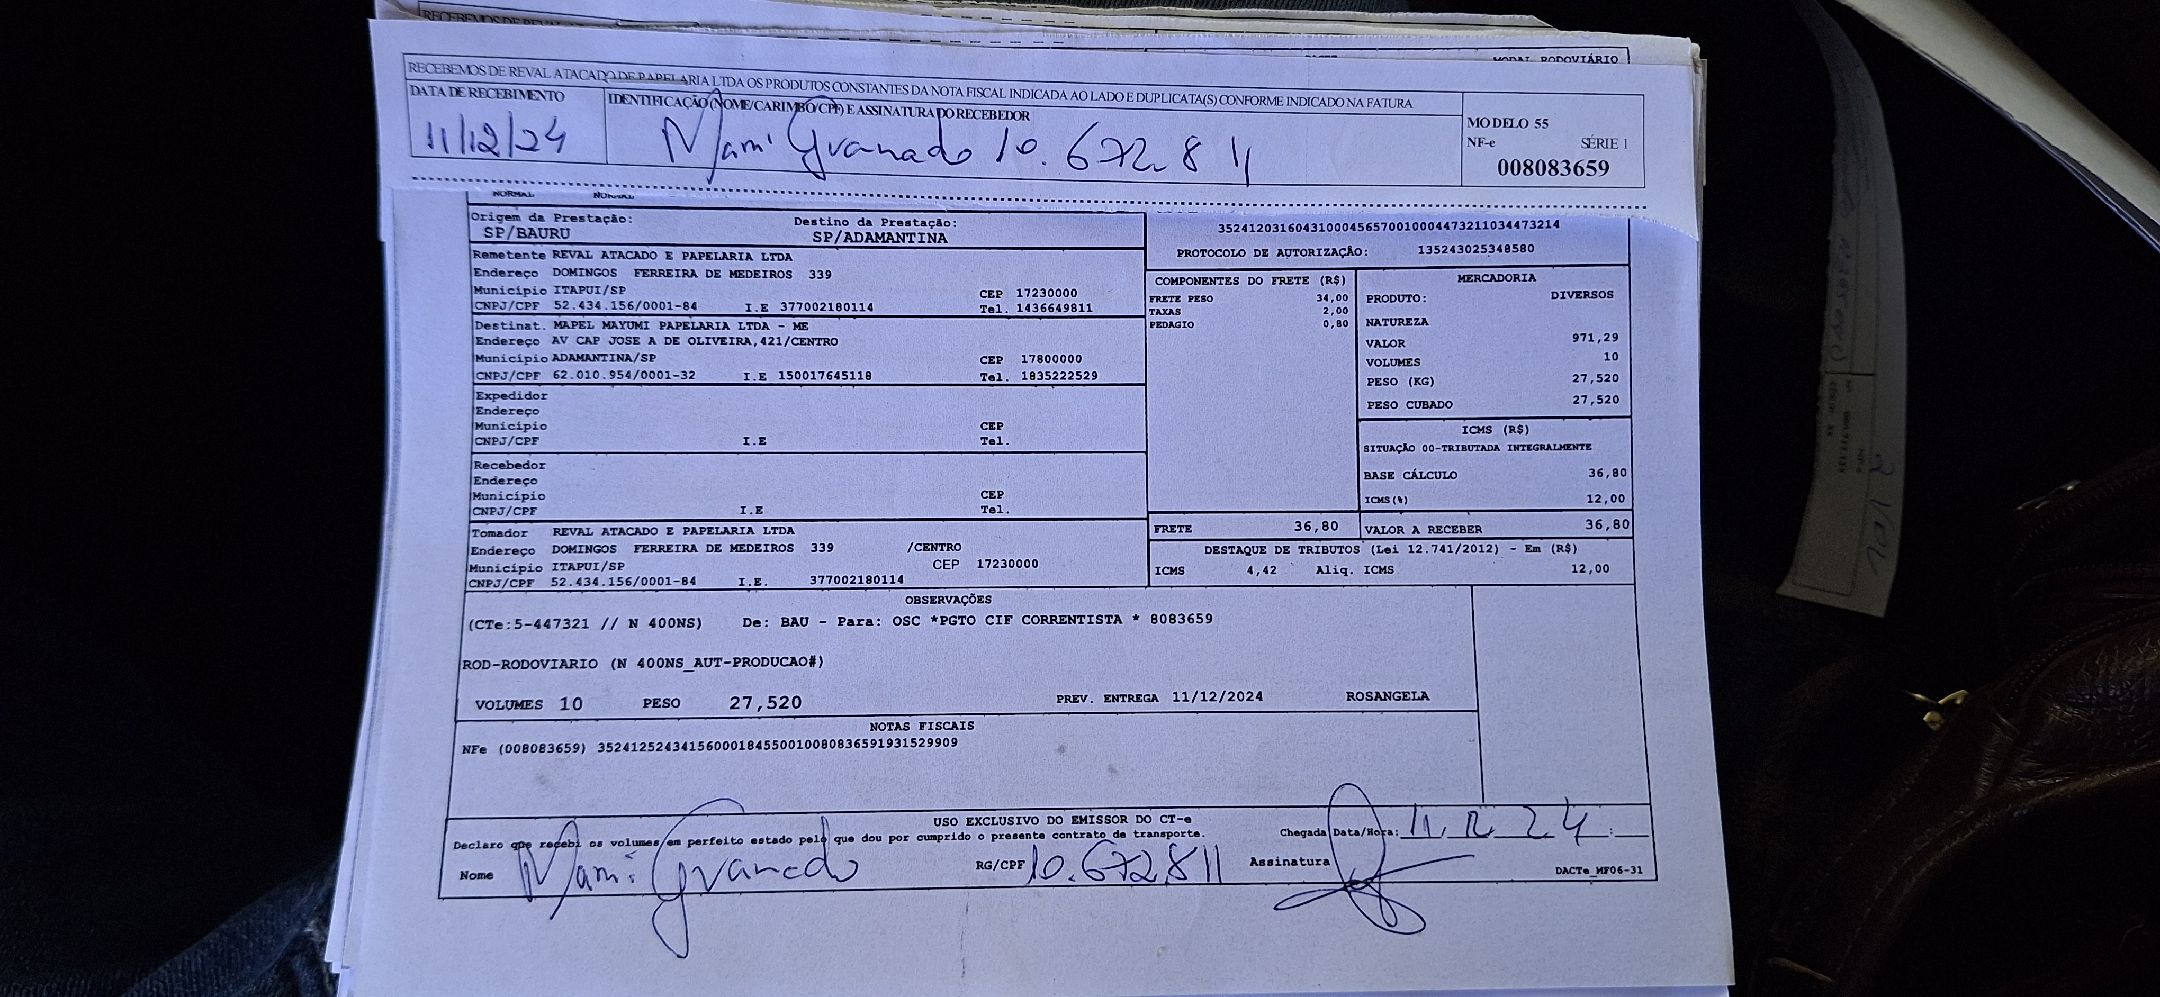 RECEBEMOS DE REVAL ATACADO DE PAPELARIA LTDA OS PRODUTOS CONSTANTES DA NOTA FISCAL INDICADA AO LADO E DUPLICATA(S) CONFORME INDICADO NA FATURA
DATA DE RECEBIMENTO IDENTIFICAÇÃO (NOME/CARIMBO/CPF) E ASSINATURA DO RECEBEDOR
11/12/24 Granado 10.672.811
MODELO 55
NF-e SÉRIE 1
008083659
NORMAL NORMAL
Origem da Prestação: Destino da Prestação:
SP/BAURU SP/ADAMANTINA
35241203160431000456570010004473211034473214
PROTOCOLO DE AUTORIZAÇÃO: 135243025348580
Remetente REVAL ATACADO E PAPELARIA LTDA
Endereço DOMINGOS FERREIRA DE MEDEIROS 339
Município ITAPUI/SP CEP 17230000
CNPJ/CPF 52.434.156/0001-84 I.E 377002180114 Tel. 1436649811
Destinat. MAPEL MAYUMI PAPELARIA LTDA - ME
Endereço AV CAP JOSE A DE OLIVEIRA,421/CENTRO
Município ADAMANTINA/SP CEP 17800000
CNPJ/CPF 62.010.954/0001-32 I.E 150017645118 Tel. 1835222529
Expedidor
Endereço
Município CEP
CNPJ/CPF I.E Tel.
Recebedor
Endereço
Município CEP
CNPJ/CPF I.E Tel.
Tomador REVAL ATACADO E PAPELARIA LTDA
Endereço DOMINGOS FERREIRA DE MEDEIROS 339 /CENTRO
Município ITAPUI/SP CEP 17230000
CNPJ/CPF 52.434.156/0001-84 I.E. 377002180114
COMPONENTES DO FRETE (R$)
FRETE PESO 34,00
TAXAS 2,00
PEDAGIO 0,80
MERCADORIA
PRODUTO: DIVERSOS
NATUREZA
VALOR 971,29
VOLUMES 10
PESO (KG) 27,520
PESO CUBADO 27,520
ICMS (R$)
SITUAÇÃO 00-TRIBUTADA INTEGRALMENTE
BASE CÁLCULO 36,80
ICMS(%) 12,00
FRETE 36,80 VALOR A RECEBER 36,80
DESTAQUE DE TRIBUTOS (Lei 12.741/2012) - Em (R$)
ICMS 4,42 Aliq. ICMS 12,00
OBSERVAÇÕES
(CTe:5-447321 // N 400NS) De: BAU - Para: OSC *PGTO CIF CORRENTISTA * 8083659
ROD-RODOVIARIO (N 400NS_AUT-PRODUCAO#)
VOLUMES 10 PESO 27,520 PREV. ENTREGA 11/12/2024 ROSANGELA
NOTAS FISCAIS
NFe (008083659) 35241252434156000184550010080836591931529909
USO EXCLUSIVO DO EMISSOR DO CT-e
Declaro que recebi os volumes em perfeito estado pelo que dou por cumprido o presente contrato de transporte.
Chegada Data/Hora: 11 12 24 :
Nome Granado RG/CPF 10.672.811 Assinatura
DACTe_MF06-31